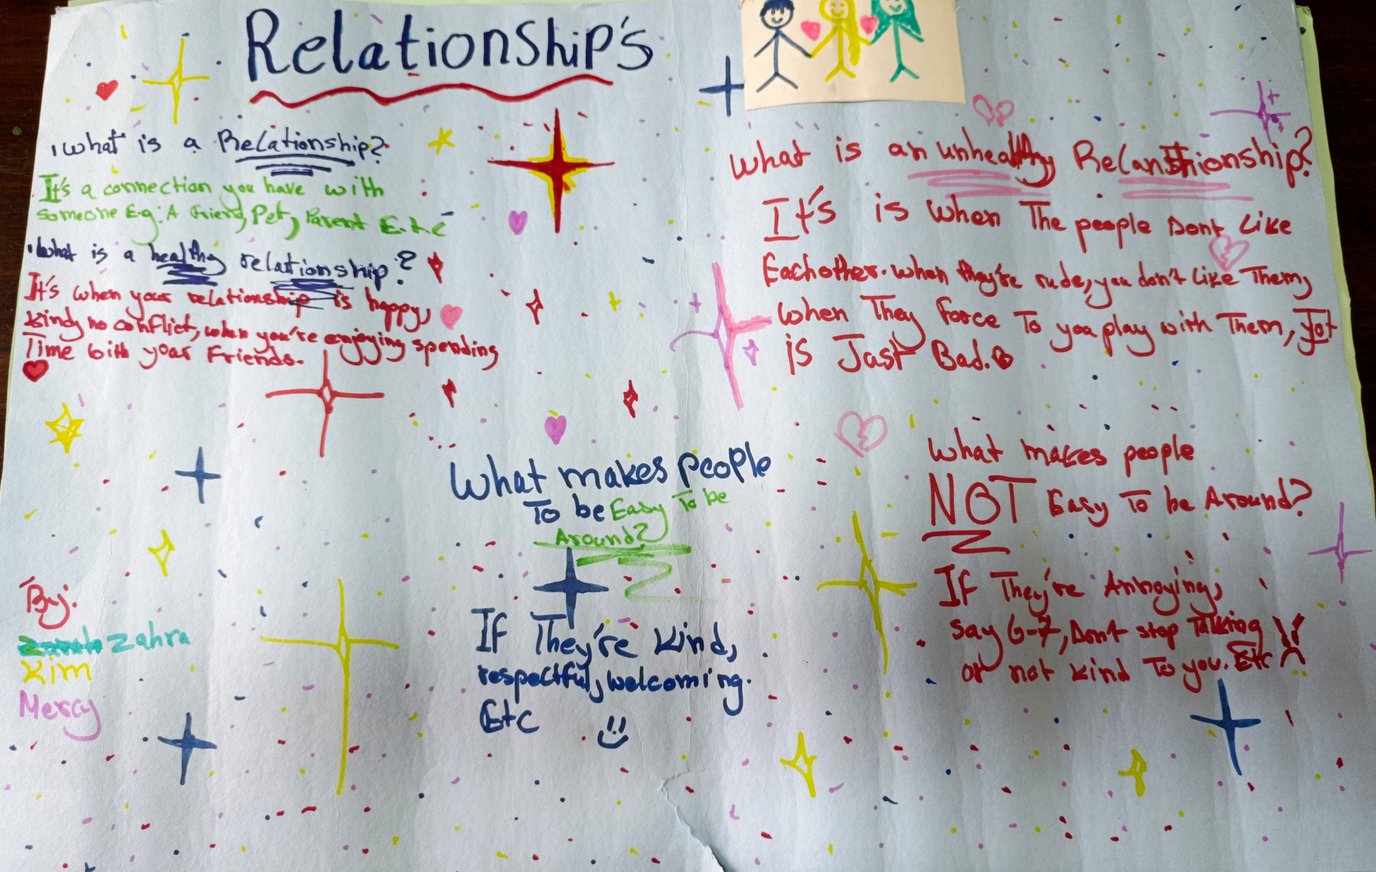 Relationship's
• What is a Relationship?
It's a connection you have with
someone Eg: A friend, Pet, Parent E.t.c
• What is a healthy relationship?
It's when your relationship is happy,
kind, no conflict, when you're enjoying spending
Time with your Friends.
What is an unhealthy Relantionship?
It's is when The people Dont Like
Eachother. when they're rude, you don't Like Them,
when They force To you play with Them,
is Just Bad.
What makes people
To be Easy To be
Around?
If They're Kind,
respectful, welcoming.
Etc
What makes people
NOT Easy To be Around?
If They're Annoying,
say 6-7, Dont stop Talking
or not kind To you. Etc
By:
Zahra
Kim
Mercy